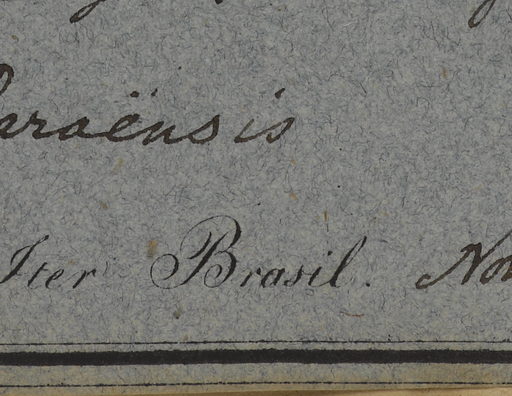 Paraënsis
Iter Brasil. Nov